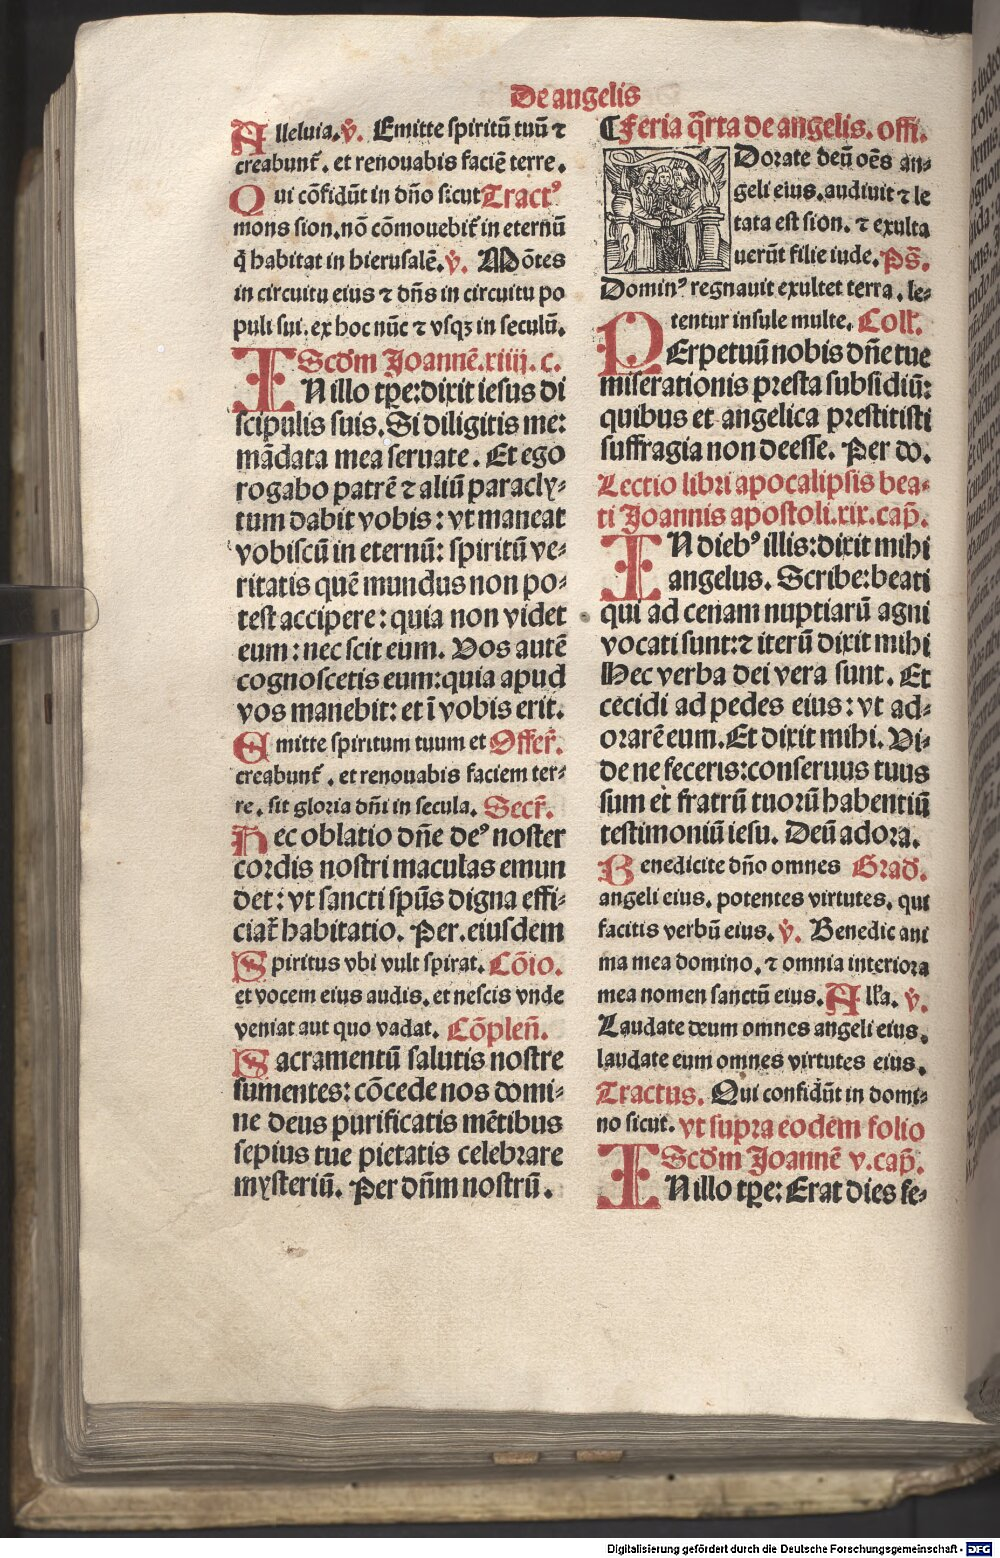 De angelis
Alleluia. v̄. Emitte spiritū tuū ⁊
creabunt᷑. et renouabis faciē terre.
Qui cōfidūt in dño sicut Tractꝰ
mons sion. nō cōmouebit᷑ in eternū
q̇ habitat in hierusalē. v̄. Mōtes
in circuitu eius ⁊ dñs in circuitu po
puli sui. ex hoc nūc ⁊ vsqꝫ in seculū.
Scďm Joannē. xiiij. c.
IN illo tꝑe: dixit iesus di
scipulis suis. Si diligitis me:
mādata mea seruate. Et ego
rogabo patrē ⁊ aliū paracly⸗
tum dabit vobis: vt maneat
vobiscū in eternū: spiritū ve⸗
ritatis quē mundus non po⸗
test accipere: quia non videt
eum: nec scit eum. Vos autē
cognoscetis eum: quia apud
vos manebit: et ī vobis erit.
Emitte spiritum tuum et Offer̄.
creabunt᷑. et renouabis faciem ter⸗
re. sit gloria dñi in secula. Secr̄.
Hec oblatio dñe deꝰ noster
cordis nostri maculas emun
det: vt sancti spūs digna effi⸗
ciat᷑ habitatio. Per. eiusdem
Spiritus vbi vult spirat. Cōio.
et vocem eius audis. et nescis vnde
veniat aut quo vadat. Cōpleñ.
Sacramentū salutis nostre
sumentes: cōcede nos domi⸗
ne deus purificatis mētibus
sepius tue pietatis celebrare
mysteriū. Per dñm nostrū.
¶ Feria q̄rta de angelis. offi.
ADorate deū oēs an⸗
geli eius. audiuit ⁊ le
tata est sion. ⁊ exulta
uerūt filie iude. Ps̄.
Dominꝰ regnauit exultet terra. le⸗
tentur insule multe. Coll̄.
PErpetuū nobis dñe tue
miserationis presta subsidiū:
quibus et angelica prestitisti
suffragia non deesse. Per do.
Lectio libri apocalipsis bea⸗
ti Joannis apostoli. xix. cap̄.
IN diebꝰ illis: dixit mihi
angelus. Scribe: beati
qui ad cenam nuptiarū agni
vocati sunt: ⁊ iterū dixit mihi
Hec verba dei vera sunt. Et
cecidi ad pedes eius: vt ad⸗
orarē eum. Et dixit mihi. Vi⸗
de ne feceris: conseruus tuus
sum et fratrū tuorū habentiū
testimoniū iesu. Deū adora.
Benedicite dño omnes Grad̄.
angeli eius. potentes virtutes. qui
facitis verbū eius. v̄. Benedic ani
ma mea domino. ⁊ omnia interiora
mea nomen sanctū eius. All̄a. v̄.
Laudate deum omnes angeli eius.
laudate eum omnes virtutes eius.
Tractus. Qui confidūt in domi⸗
no sicut. vt supra eodem folio
Scďm Joannē v. cap̄.
IN illo tꝑe: Erat dies fe⸗
Digitalisierung gefördert durch die Deutsche Forschungsgemeinschaft - DFG